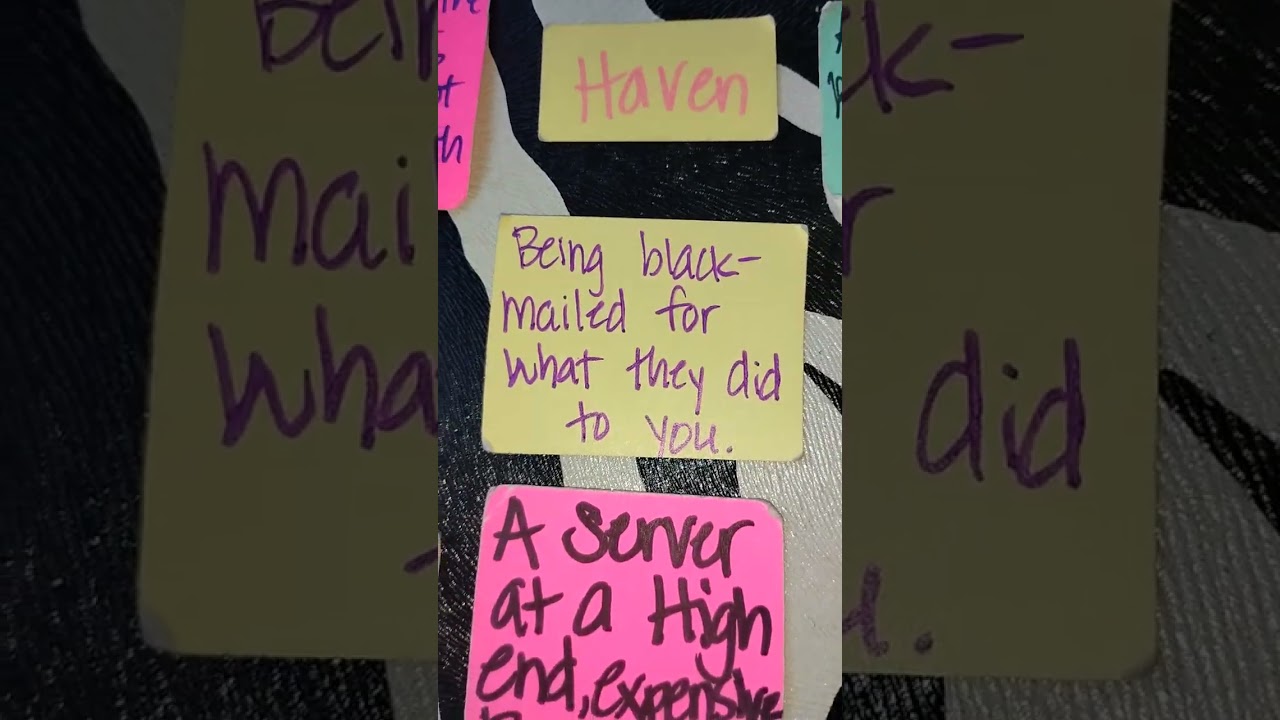 Haven
Being black-
mailed for
what they did
to you.
A Server
at a High
end, expensive